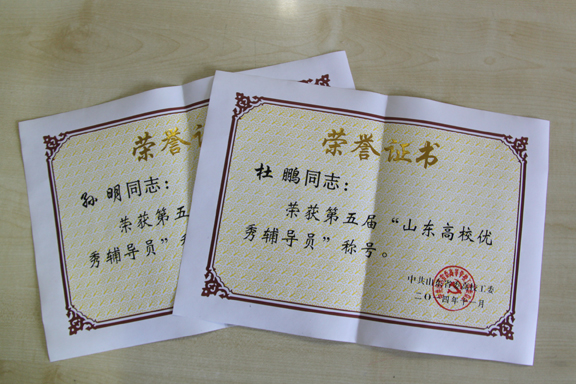 荣誉证
孙 明同志：
荣获第五
秀辅导员”称
荣誉证书
杜 鹏同志：
荣获第五届“山东高校优
秀辅导员”称号。
中共山东省委高校工委
二〇一四年十一月